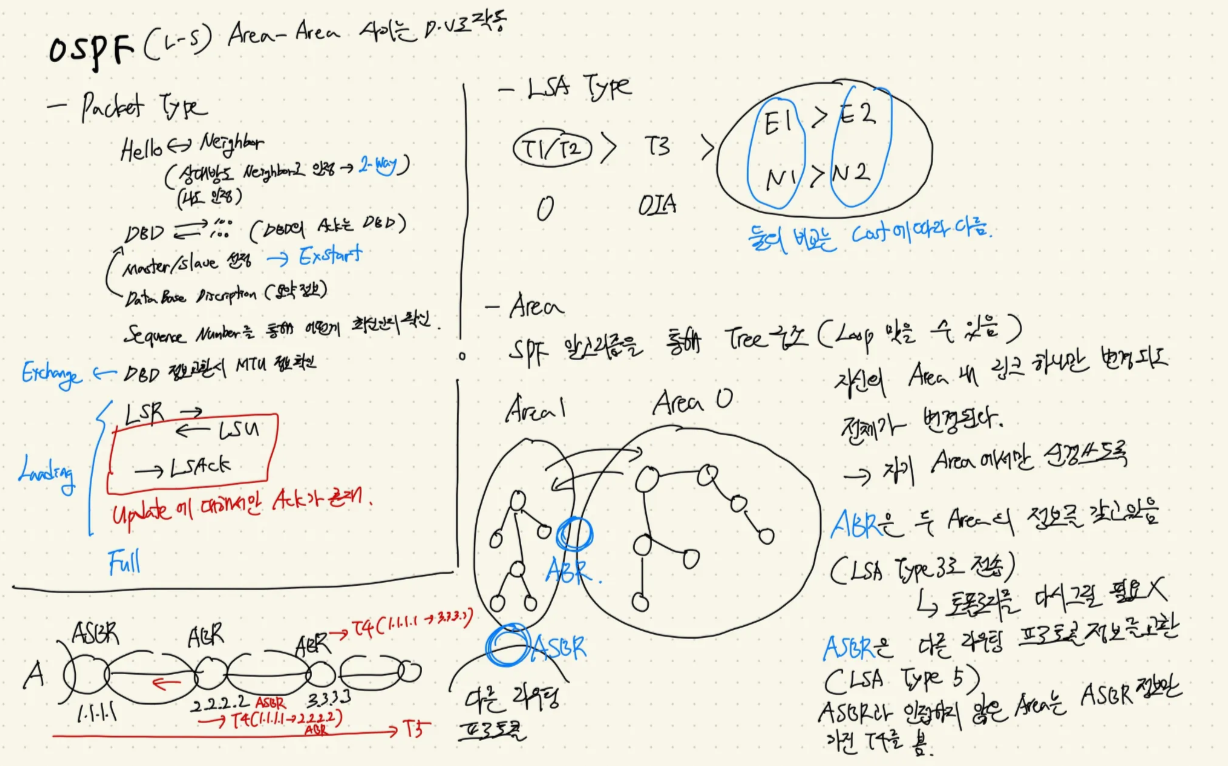 OSPF (L-S) Area-Area 사이는 D.V로 작동
- Packet Type
Hello ↔ Neighbor
(상대방도 Neighbor로 인정 → 2-way)
(나도 인정)
DBD ⇄ (DBD의 Ack는 DBD)
Master/Slave 선정 → Exstart
Data Base Discription (요약정보)
Sequence Number를 통해 어떻게 확인한지 확인.
Exchange ← DBD 정보교환시 MTU 정보확인
LSR →
← LSU
Loading
→ LSAck
Update에 대해서만 Ack가 존재.
Full
- LSA Type
T1/T2 > T3 > E1 > E2
N1 > N2
O OIA
둘의 비교는 Cost에 따라 다름.
- Area
SPF 알고리즘을 통해 Tree 구조 (Loop 막을 수 있음)
자신의 Area 내 링크 하나만 변경되도
전체가 변경된다.
→ 자기 Area에서만 신경쓰도록
Area 1 Area 0
ABR.
ASBR
다른 라우팅
프로토콜
ABR은 두 Area의 정보를 갖고있음
(LSA Type 3로 전송)
↳ 토폴로지를 다시그릴 필요 X
ASBR은 다른 라우팅 프로토콜 정보를 교환
(LSA Type 5)
ASBR과 인접하지 않은 Area는 ASBR 정보만
가진 T4를 봄.
ASBR ABR ABR → T4(1.1.1.1 → 3.3.3.3)
A
1.1.1.1 2.2.2.2 ASBR 3.3.3.3
→ T4(1.1.1.1 → 2.2.2.2)
ABR
→ T5